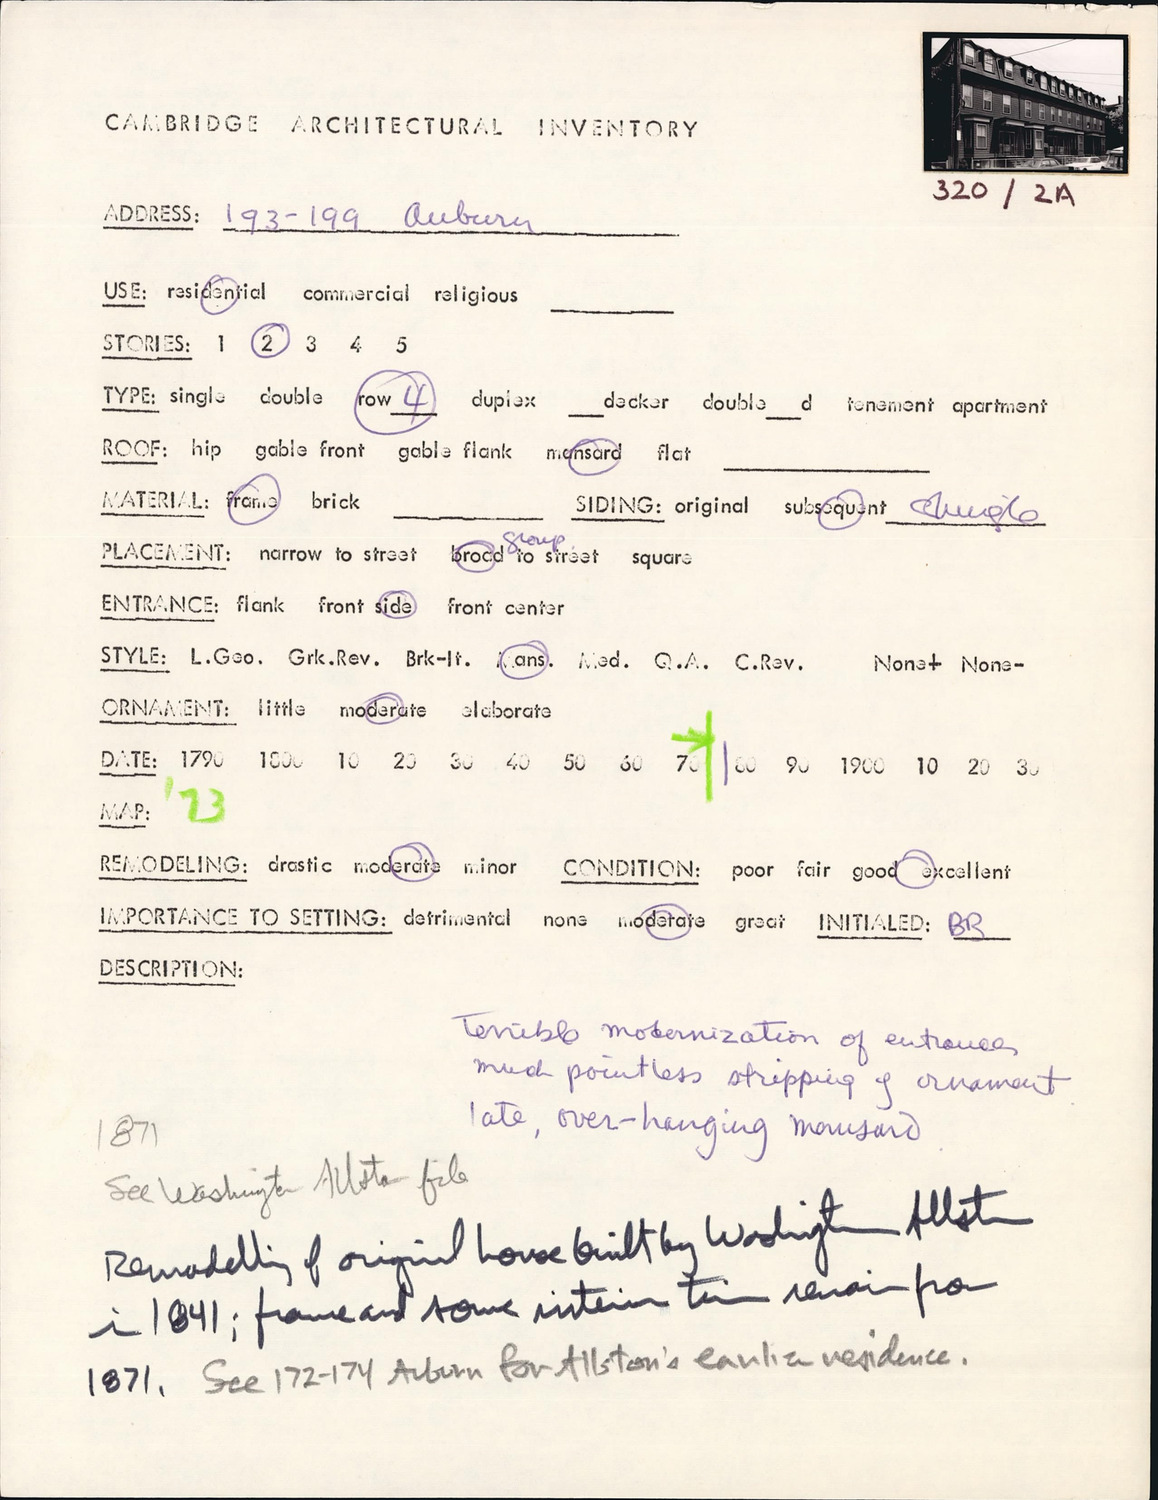 320 / 2A
CAMBRIDGE ARCHITECTURAL INVENTORY
ADDRESS: 193-199 Auburn
USE: residential commercial religious
STORIES: 1 2 3 4 5
TYPE: single double row 4 duplex __decker double__d tenement apartment
ROOF: hip gable front gable flank mansard flat
MATERIAL: frame brick SIDING: original subsequent shingle
group
PLACEMENT: narrow to street broad to street square
ENTRANCE: flank front side front center
STYLE: L.Geo. Grk.Rev. Brk-It. Mans. Med. Q.A. C.Rev. None+ None-
ORNAMENT: little moderate elaborate
DATE: 1790 1800 10 20 30 40 50 60 70 80 90 1900 10 20 30
MAP: '73
REMODELING: drastic moderate minor CONDITION: poor fair good excellent
IMPORTANCE TO SETTING: detrimental none moderate great INITIALED: BR
DESCRIPTION:
Terrible modernization of entrances
much pointless stripping of ornament
late, over-hanging mansard
1871
See Washington Allston file
Remodelling of original house built by Washington Allston
in 1841; frame and some interior trim remain from
1871. See 172-174 Auburn for Allston's earlier residence.